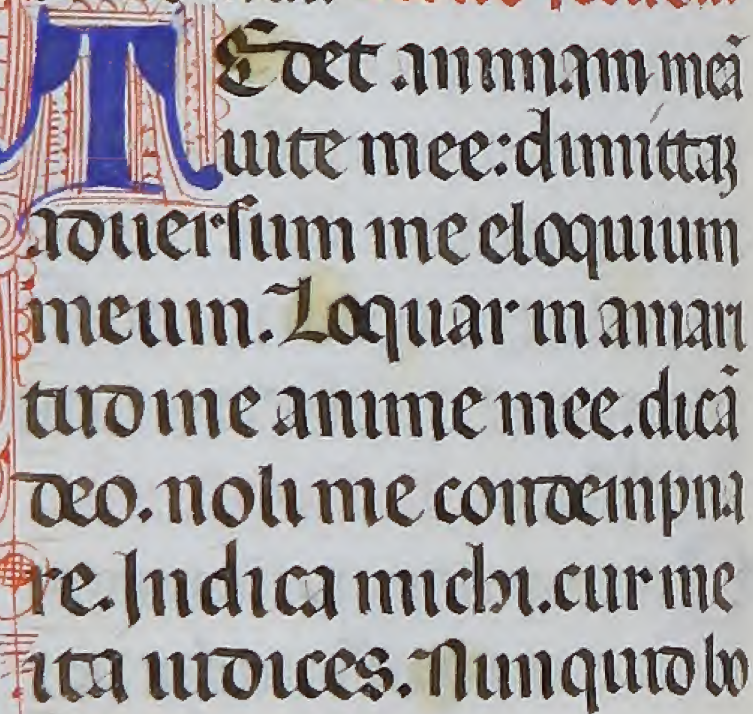 TEdet animam meã
uite mee: dimittaʒ
aduersum me eloquium
meum. Loquar in amari
tudine anime mee. dicã
deo. noli me condempna
re. Indica michi. cur me
ita iudices. Nunquid bo